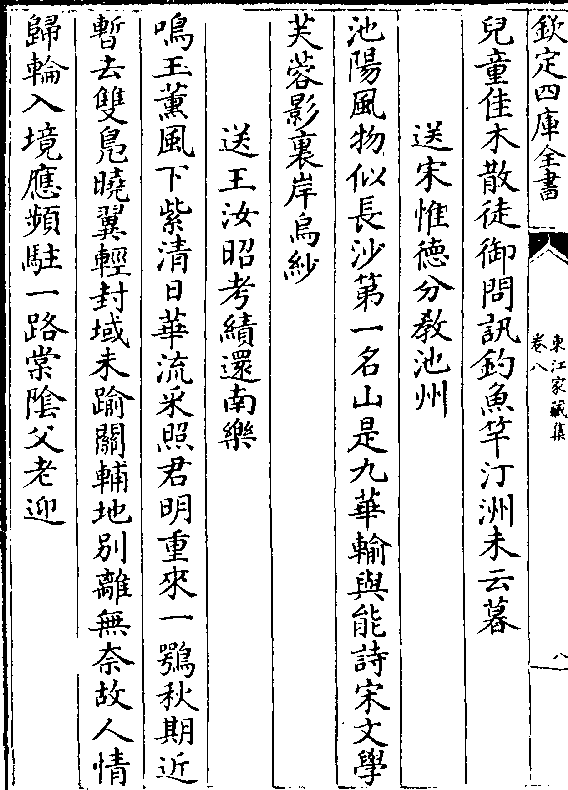 欽定四庫全書
東江家藏集
卷八
八
兒童佳木散徒御問訊釣魚竿汀洲未云暮
送宋惟德分教池州
池陽風物似長沙第一名山是九華輸與能詩宋文學
芙蓉影裏岸烏紗
送王汝昭考績還南樂
鳴玉薰風下紫清日華流采照君明重來一鶚秋期近
暫去雙鳬曉翼輕封域未踰關輔地別離無奈故人情
歸輪入境應頻駐一路棠陰父老迎